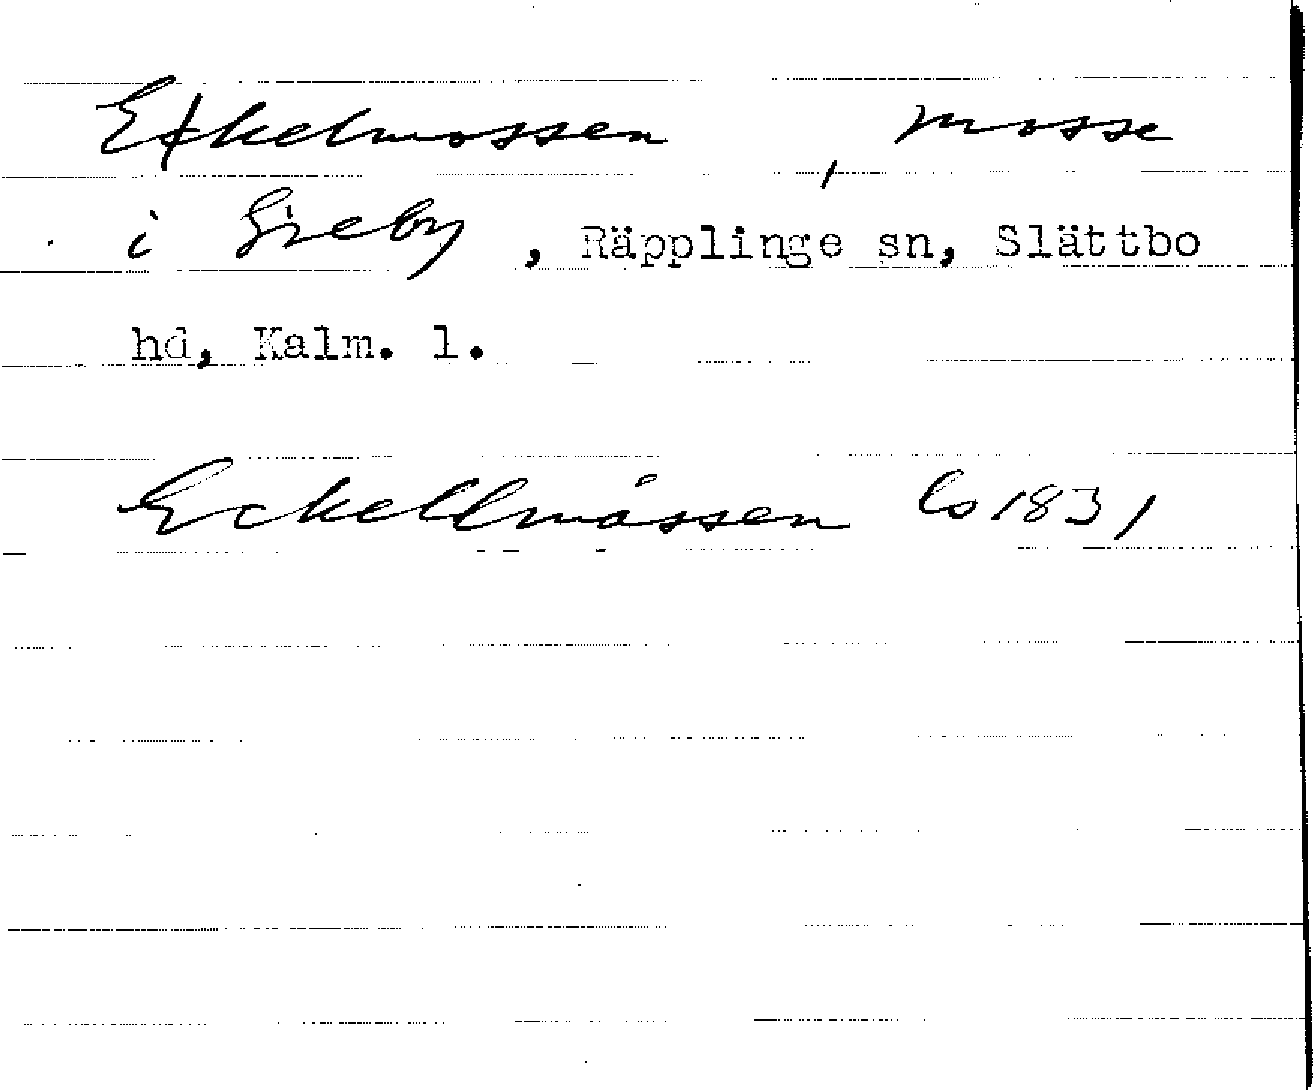 Ekelmossen , mosse
i Greby , Räpplinge sn, Slättbo
hd, Kalm. l.
Eckellmåssen ls 1831